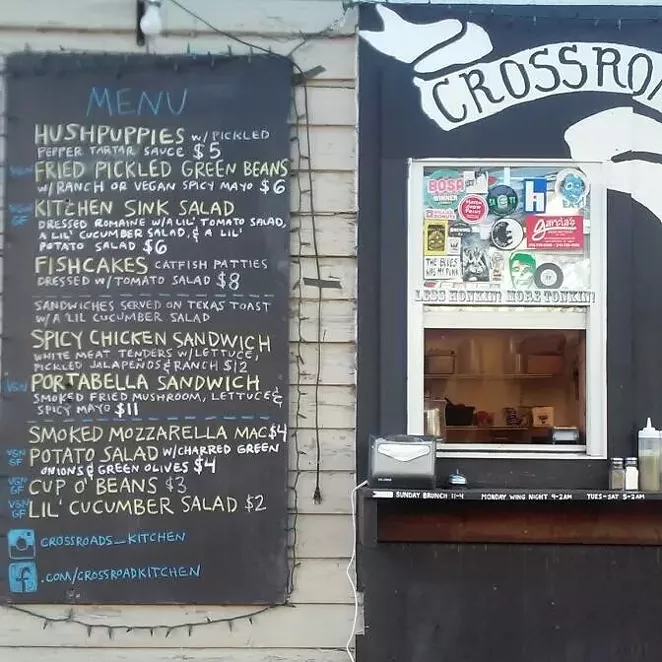 MENU
HUSHPUPPIES W/ PICKLED
PEPPER TARTAR SAUCE $5
VGN FRIED PICKLED GREEN BEANS
W/RANCH OR VEGAN SPICY MAYO $6
GF KITCHEN SINK SALAD
DRESSED ROMAINE W/A LIL' TOMATO SALAD,
A LIL' CUCUMBER SALAD, & A LIL'
POTATO SALAD $6
FISHCAKES CATFISH PATTIES
DRESSED W/TOMATO SALAD $8
SANDWICHES SERVED ON TEXAS TOAST
W/A LIL CUCUMBER SALAD
SPICY CHICKEN SANDWICH
WHITE MEAT TENDERS W/LETTUCE,
PICKLED JALAPEÑOS & RANCH $12
VGN PORTABELLA SANDWICH
SMOKED FRIED MUSHROOM, LETTUCE &
SPICY MAYO $11
SMOKED MOZZARELLA MAC $4
VGN GF POTATO SALAD W/CHARRED GREEN
ONIONS & GREEN OLIVES $4
VGN GF CUP O' BEANS $3
VGN GF LIL' CUCUMBER SALAD $2
CROSSROADS_KITCHEN
f .COM/CROSSROADKITCHEN
CROSSROA
BOSA
WINNER
h
garcia's
THE BLUES
WAS MY PUNK
LESS HONKIN! MORE TONKIN!
SUNDAY BRUNCH 11-4 MONDAY WING NIGHT 4-2AM TUES-SAT 5-2AM